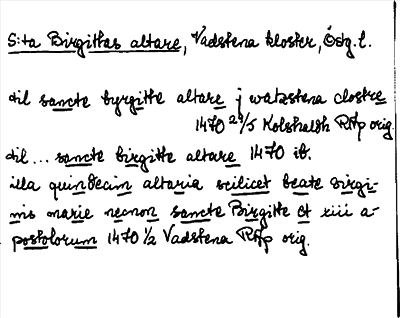 S:ta Birgittas altare, Vadstena kloster, Östg. l.
til sancte byrgitte altare j watzstena clostre
1470 29/5 Kolshaldh RAp orig.
til ... sancte birgitte altare 1470 ib.
illa quindecin altaria scilicet beate virgi-
nis marie necnon sancte Birgitte et xiii a-
postolorum 1470 1/2 Vadstena RAp orig.